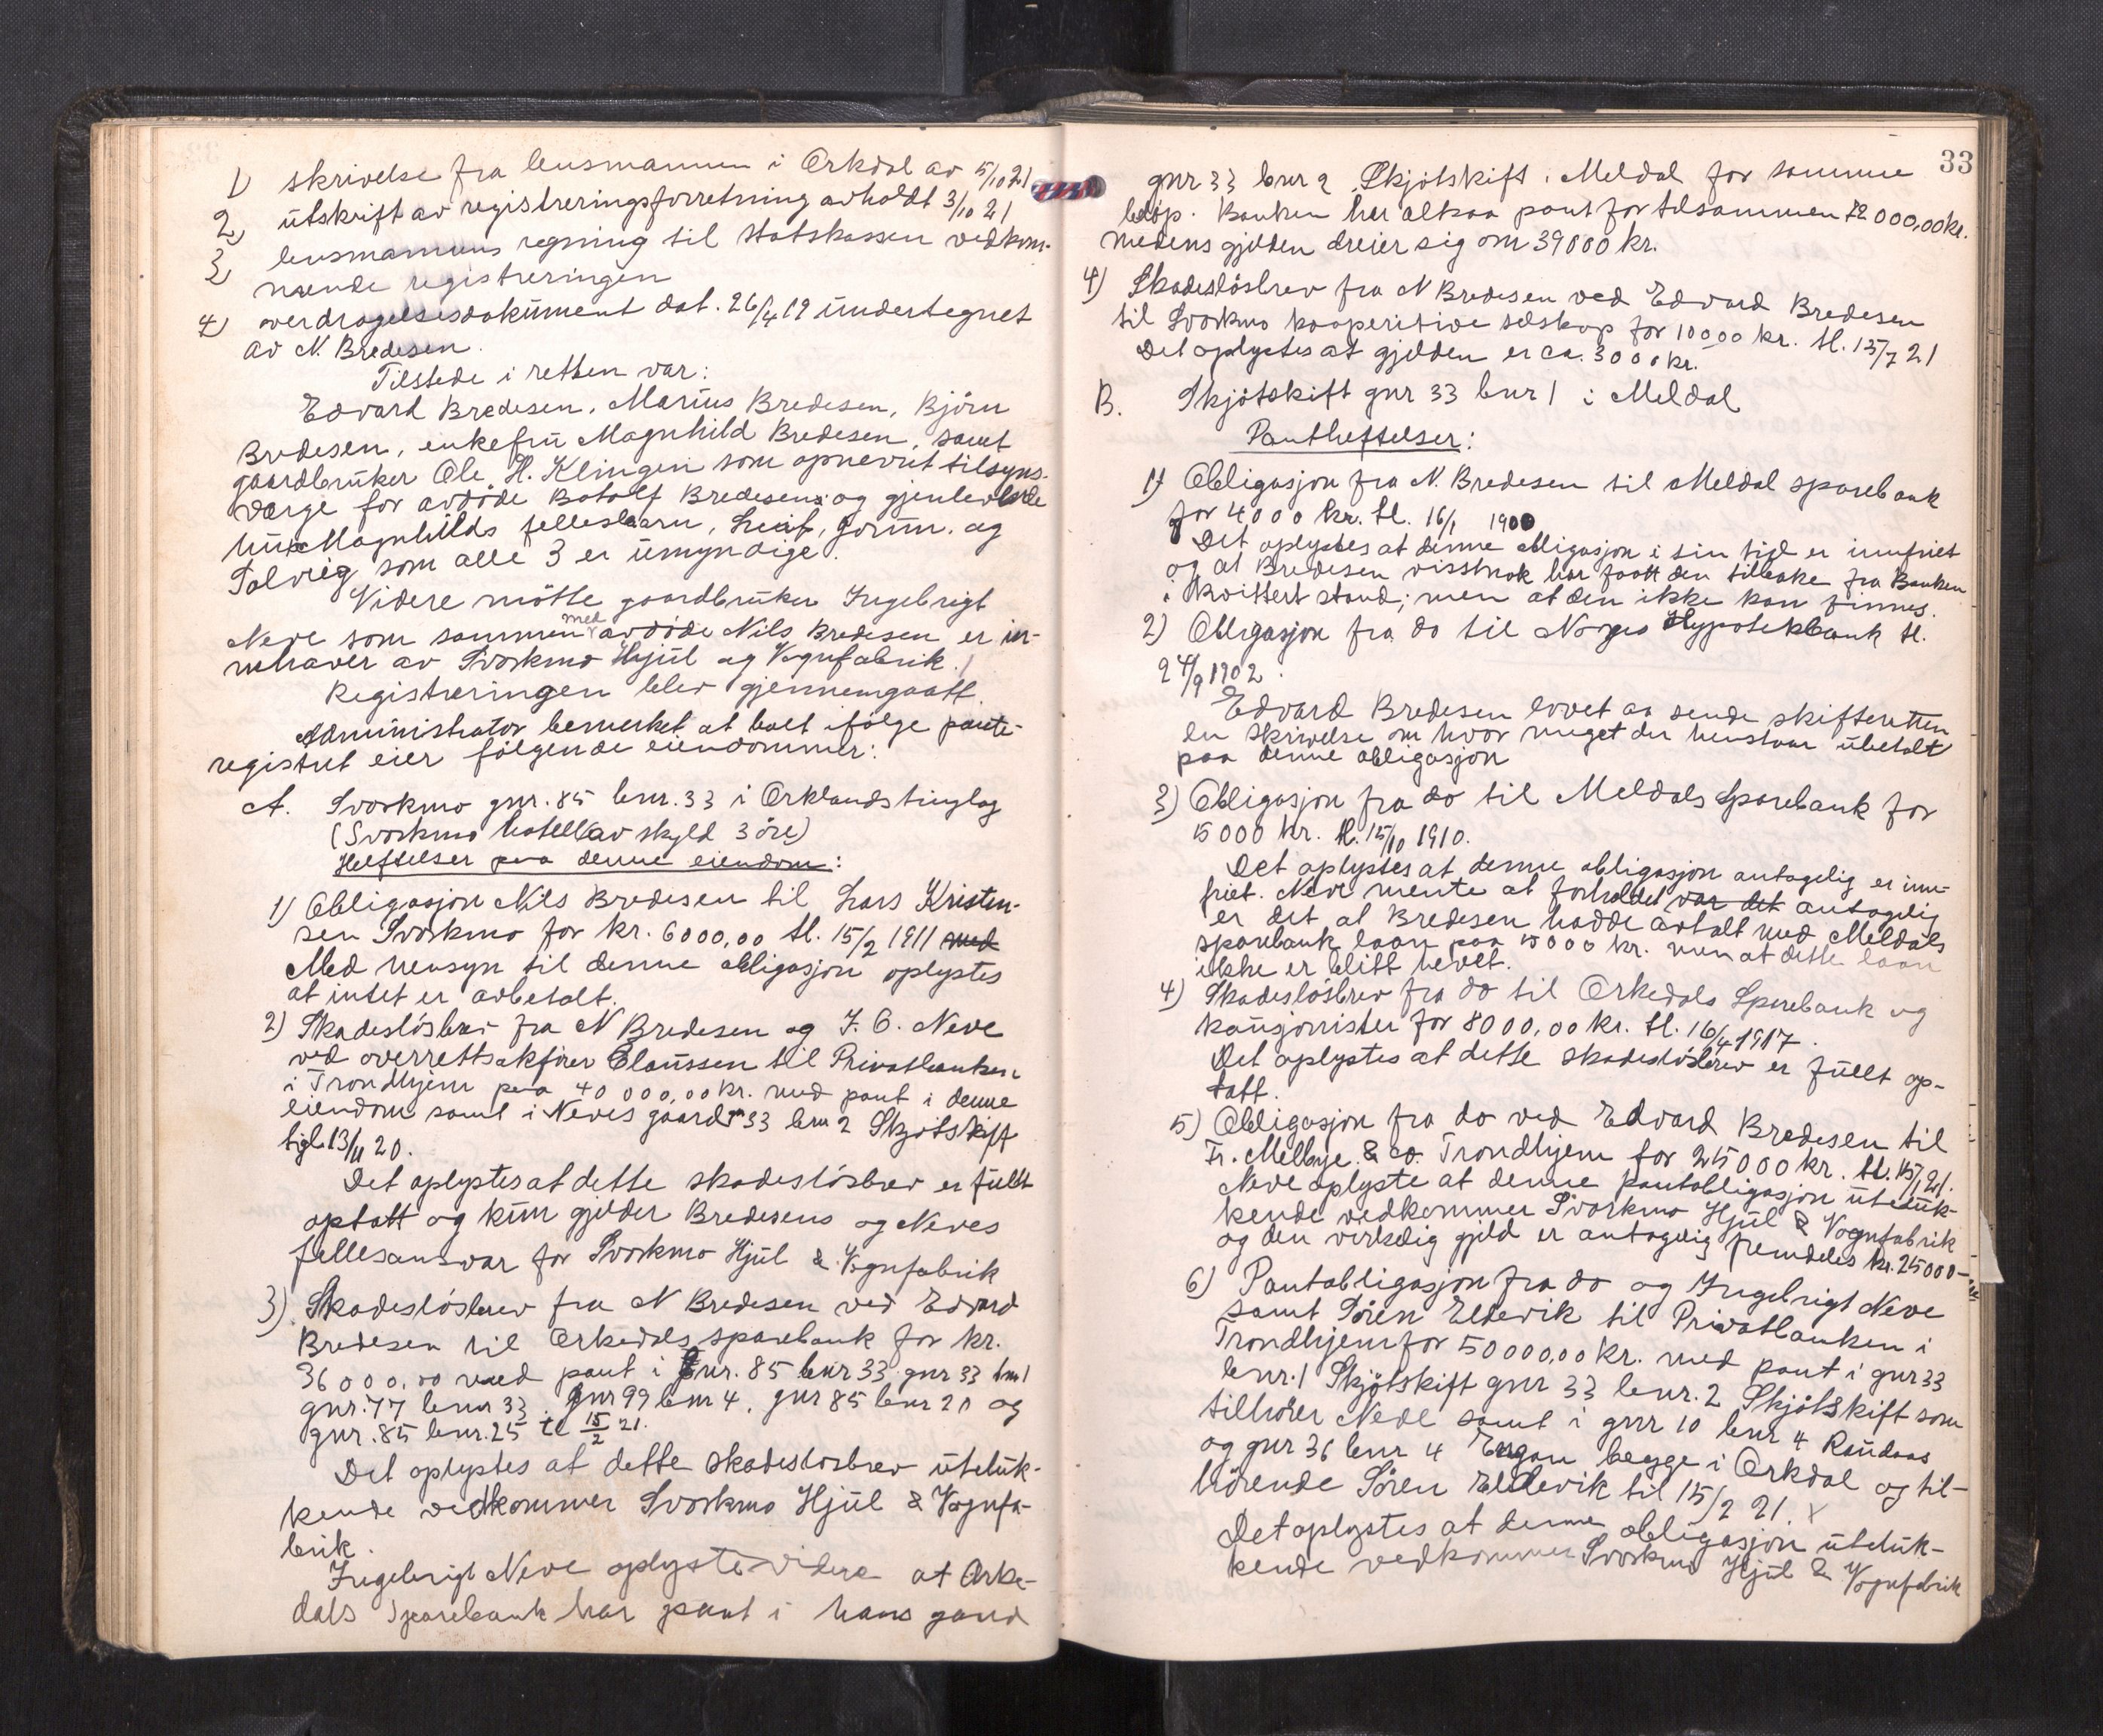 1) skrivelse fra lensmannen i Orkdal av 5/10 21
2) utskrift av registreringsforretning avholdt 3/10 21
3) lensmannens regning til statskassen vedkom-
mende registreringen
4) overdragelsesdokument dat. 26/4 19 undertegnet
av N. Bredesen.
Tilstede i retten var:
Edvard Bredesen, Marius Bredesen, Björn
Bredesen, enkefru Magnhild Bredesen, samt
gaardbruker Ole H. Klingen som opnevnt tilsyns-
verge for avdöde Botolf Bredesens og gjenlevende
hus Magnhilds fellesbarn, Gorun. og
Solveig som alle 3 er umyndige.
Videre mötte gaardbruker Ingebrigt
Neve som sammen med avdöde Nils Bredesen er in-
nehaver av Svorkmo Hjul og Vognfabrik.
Registreringen blev gjennemgaatt.
Administrator bemerket at boet ifölge pante-
registret eier fölgende eiendommer:
A. Svorkmo gnr. 85 bnr. 33 i Orklands tinglag
(Svorkmo hotell av skyld 3 öre)
Heftelser paa denne eiendom:
1) Obligasjon Nils Bredesen til Lars Kristen-
sen Svorkmo for kr. 6000,00 tl. 15/2 1911 med
Med hensyn til denne obligasjon oplystes
at intet er avbetalt.
2) Skadeslösbrev fra N Bredesen og I. O. Neve
ved overrettssakförer Claussen til Privatbanken
i Trondhjem paa 40 000,00 kr. med pant i denne
eiendom samt i Neves gaard gnr 33 bnr 2 Skjötskift
tgl. 13/11 20.
Det oplystes at dette skadeslösbrev er fullt
optatt og kun gjelder Bredesens og Neves
fellesansvar for Svorkmo Hjul & Vognfabrik
3) Skadeslösbrev fra N Bredesen ved Edvard
Bredesen til Orkedals sparebank for kr.
36 000,00 med pant i gnr. 85 bnr 33. gnr 33 bnr 1
gnr. 77 bnr 33. gnr 99 bnr 4, gnr 85 bnr 20 og
gnr. 85 bnr. 25 tl 15/2 21.
Det oplystes at dette skadeslosbrev uteluk-
kende vedkommer Svorkmo Hjul & Vognfa-
brik.
Ingebrigt Neve oplyste videre at Orke-
dals Sparebank har pant i hans gaard
33
gnr 33 bnr 2 Skjötskift i Meldal for samme
belöp. Banken har altsaa pant for tilsammen 72 000,00 kr.
medens gjelden dreier sig om 39000 kr.
4) Skadeslösbrev fra N Bredesen ved Edvard Bredesen
til Svorkmo kooperitive selskap for 10000 kr. tl. 15/7 21
Det oplystes at gjelden er ca. 3000 kr.
B. Skjötskift gnr 33 bnr 1 i Meldal
Pantheftelser:
1) Obligasjon fra N. Bredesen til Meldal sparebank
for 4000 kr. tl. 16/1 1900
Det oplystes at denne obligasjon i sin tid er innfriet
og at Bredesen visstnok har faatt den tilbake fra Banken
i kvittert stand; men at den ikke kan finnes.
2) Obligasjon fra do til Norges Hypotekbank tl.
24/9 1902.
Edvard Bredesen lovet aa sende skifteretten
en skrivelse om hvor meget der henstaar ubetalt
paa denne obligasjon
3) Obligasjon fra do til Meldals Sparebank for
15000 kr. tl. 15/10 1910.
Det oplystes at denne obligasjon antagelig er inn-
friet. Neve mente at forholdet var det antagelig
er det at Bredesen hadde avtalt med Meldals
sparebank laan paa 15000 kr. men at dette laan
ikke er blitt hevet.
4) Skadeslösbrev fra do til Orkedals Sparebank og
kausjonister for 8000,00 kr. tl. 16/4 1917.
Det oplystes at dette skadeslösbrev er fullt op-
tatt.
5) Obligasjon fra do ved Edvard Bredesen til
Fr. Mellbye & co. Trondhjem for 25000 kr. tl. 15/1 21.
Neve oplyste at denne pantobligasjon uteluk-
kende vedkommer Svorkmo Hjul & Vognfabrik
og den virkelig gjeld er antagelig fremdeles kr. 25000-
6) Pantobligasjon fra do og Ingebrigt Neve
samt Sören Eldevik til Privatbanken i
Trondhjem for 50000,00 kr. med pant i gnr 33
bnr. 1 Skjötskift gnr 33 bnr. 2 Skjötskift som
tilhörer Neve samt i gnr 10 bnr 4 Raudaas
og gnr 36 bnr 4 Engan begge i Orkdal og til-
hörende Sören Eldevik til 15/2 21. x
Det oplystes at denne obligasjon uteluk-
kende vedkommer Svorkmo Hjul & Vognfabrik